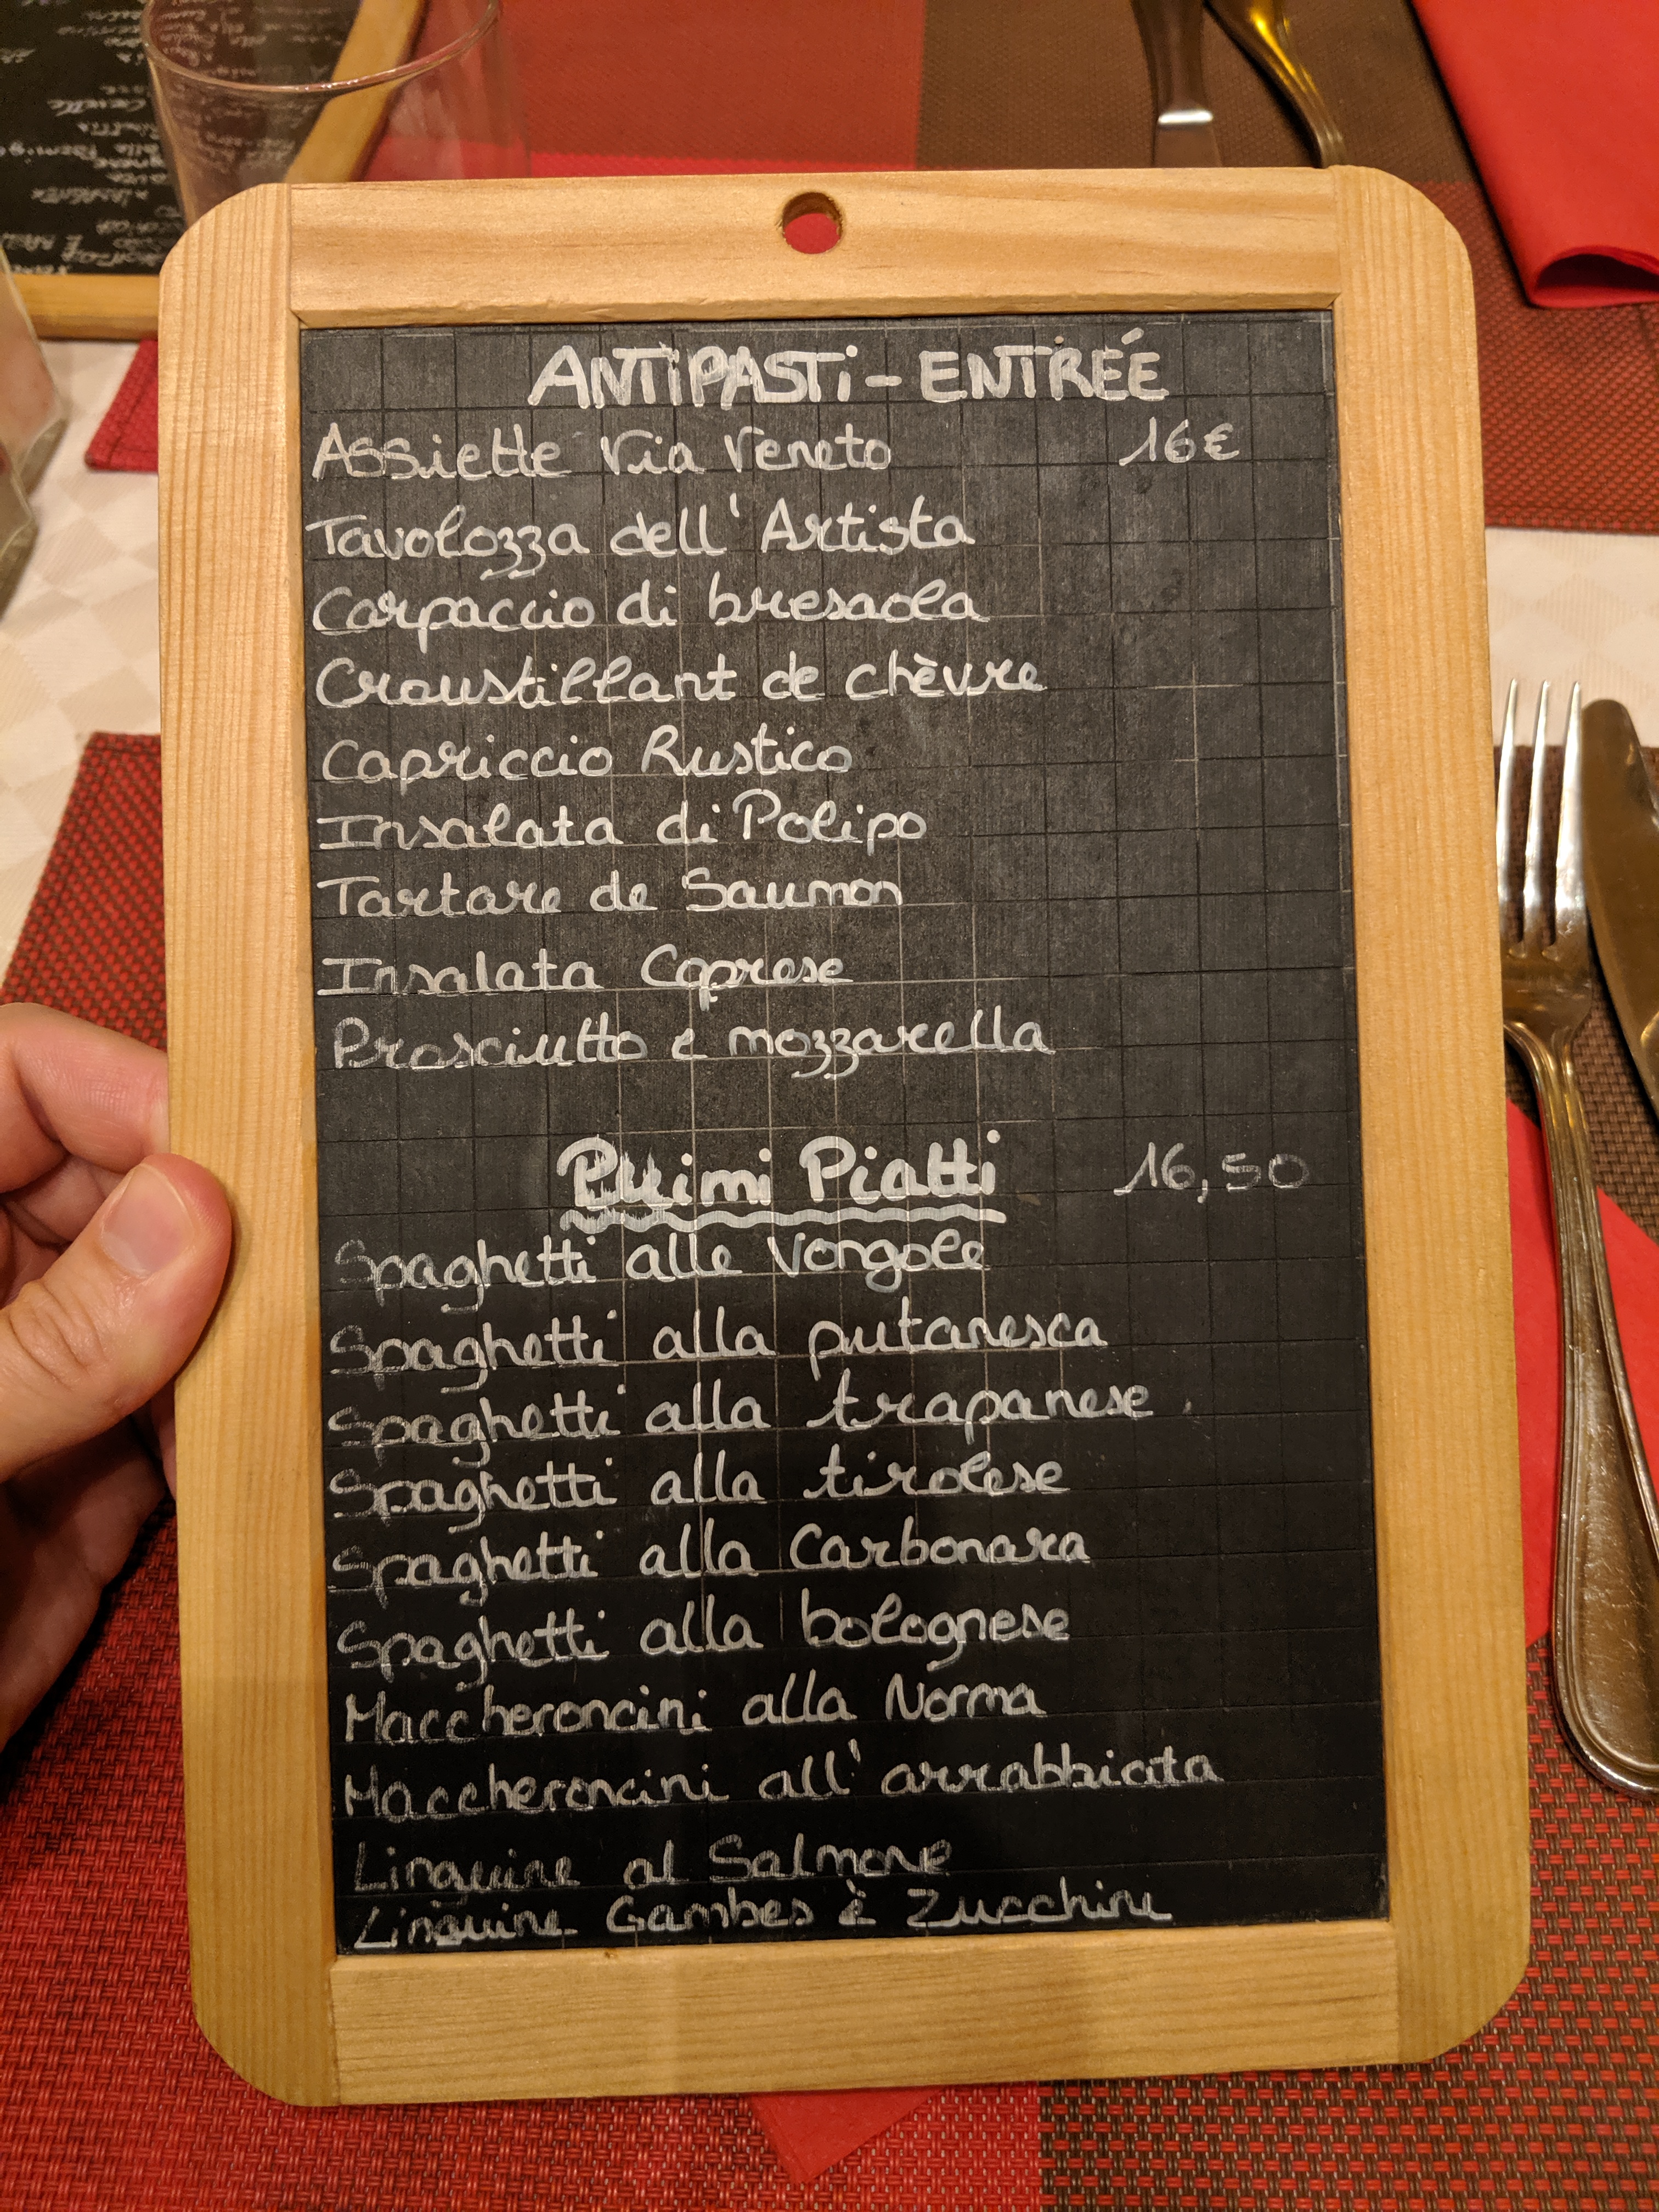 ANTIPASTI - ENTRÉE
Assiette Via Veneto 16€
Tavolozza dell'Artista
Carpaccio di bresaola
Croustillant de chèvre
Capriccio Rustico
Insalata di Polipo
Tartare de Saumon
Insalata Caprese
Prosciutto e mozzarella
Primi Piatti 16,50
Spaghetti alle Vongole
Spaghetti alla putanesca
Spaghetti alla trapanese
Spaghetti alla tirolese
Spaghetti alla Carbonara
Spaghetti alla bolognese
Maccheroncini alla Norma
Maccheroncini all'arrabbiata
Linguine al Salmone
Linguine Gambes è Zucchini